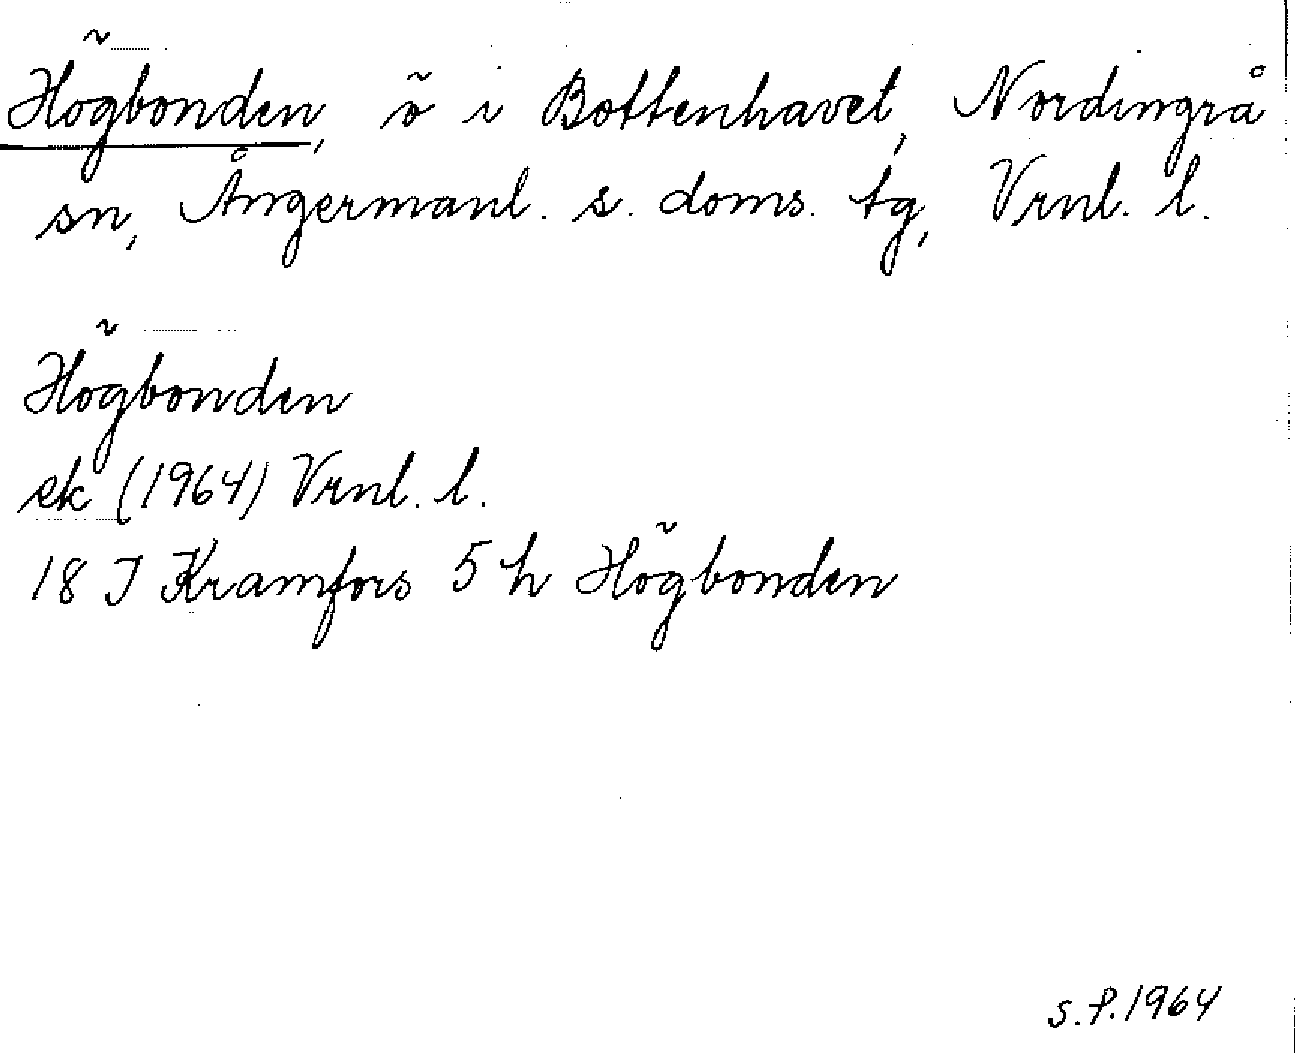 Högbonden, ö i Bottenhavet, Nordingrå
sn, Ångermanl. s. doms. tg, Vrnl. l.
Högbonden
ek (1964) Vrnl. l.
18 J Kramfors 5 h Högbonden
S.P.1964